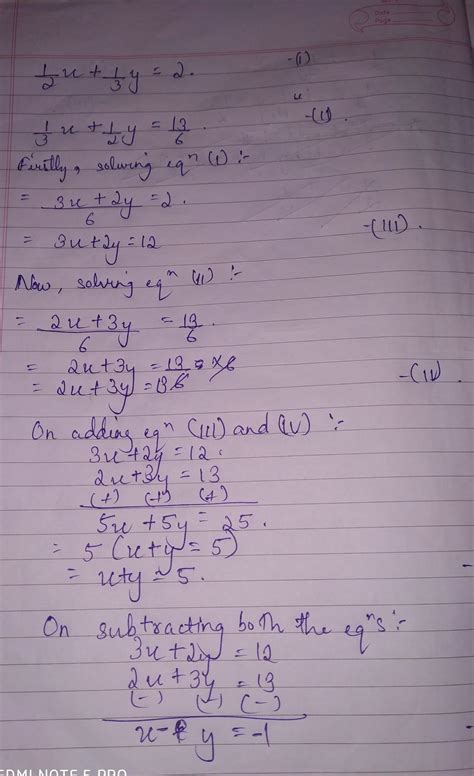 Date
Page
1/2 x + 1/3 y = 2. -(i)
1/3 x + 1/2 y = 13/6. -(ii)
Firstly, solving eqⁿ (i) :-
= 3x + 2y / 6 = 2.
= 3x + 2y = 12 -(III).
Now, solving eqⁿ (ii) :-
= 2x + 3y / 6 = 13/6
= 2x + 3y = 13/6 × 6
= 2x + 3y = 13 -(IV
On adding eqⁿ (III) and (IV) :-
3x + 2y = 12.
2x + 3y = 13
(+) (+) (+)
5x + 5y = 25.
= 5 (x + y = 5)
= x + y = 5.
On subtracting both the eqⁿs :-
3x + 2y = 12
2x + 3y = 13
(-) (-) (-)
x - y = -1
REDMI NOTE 5 PRO